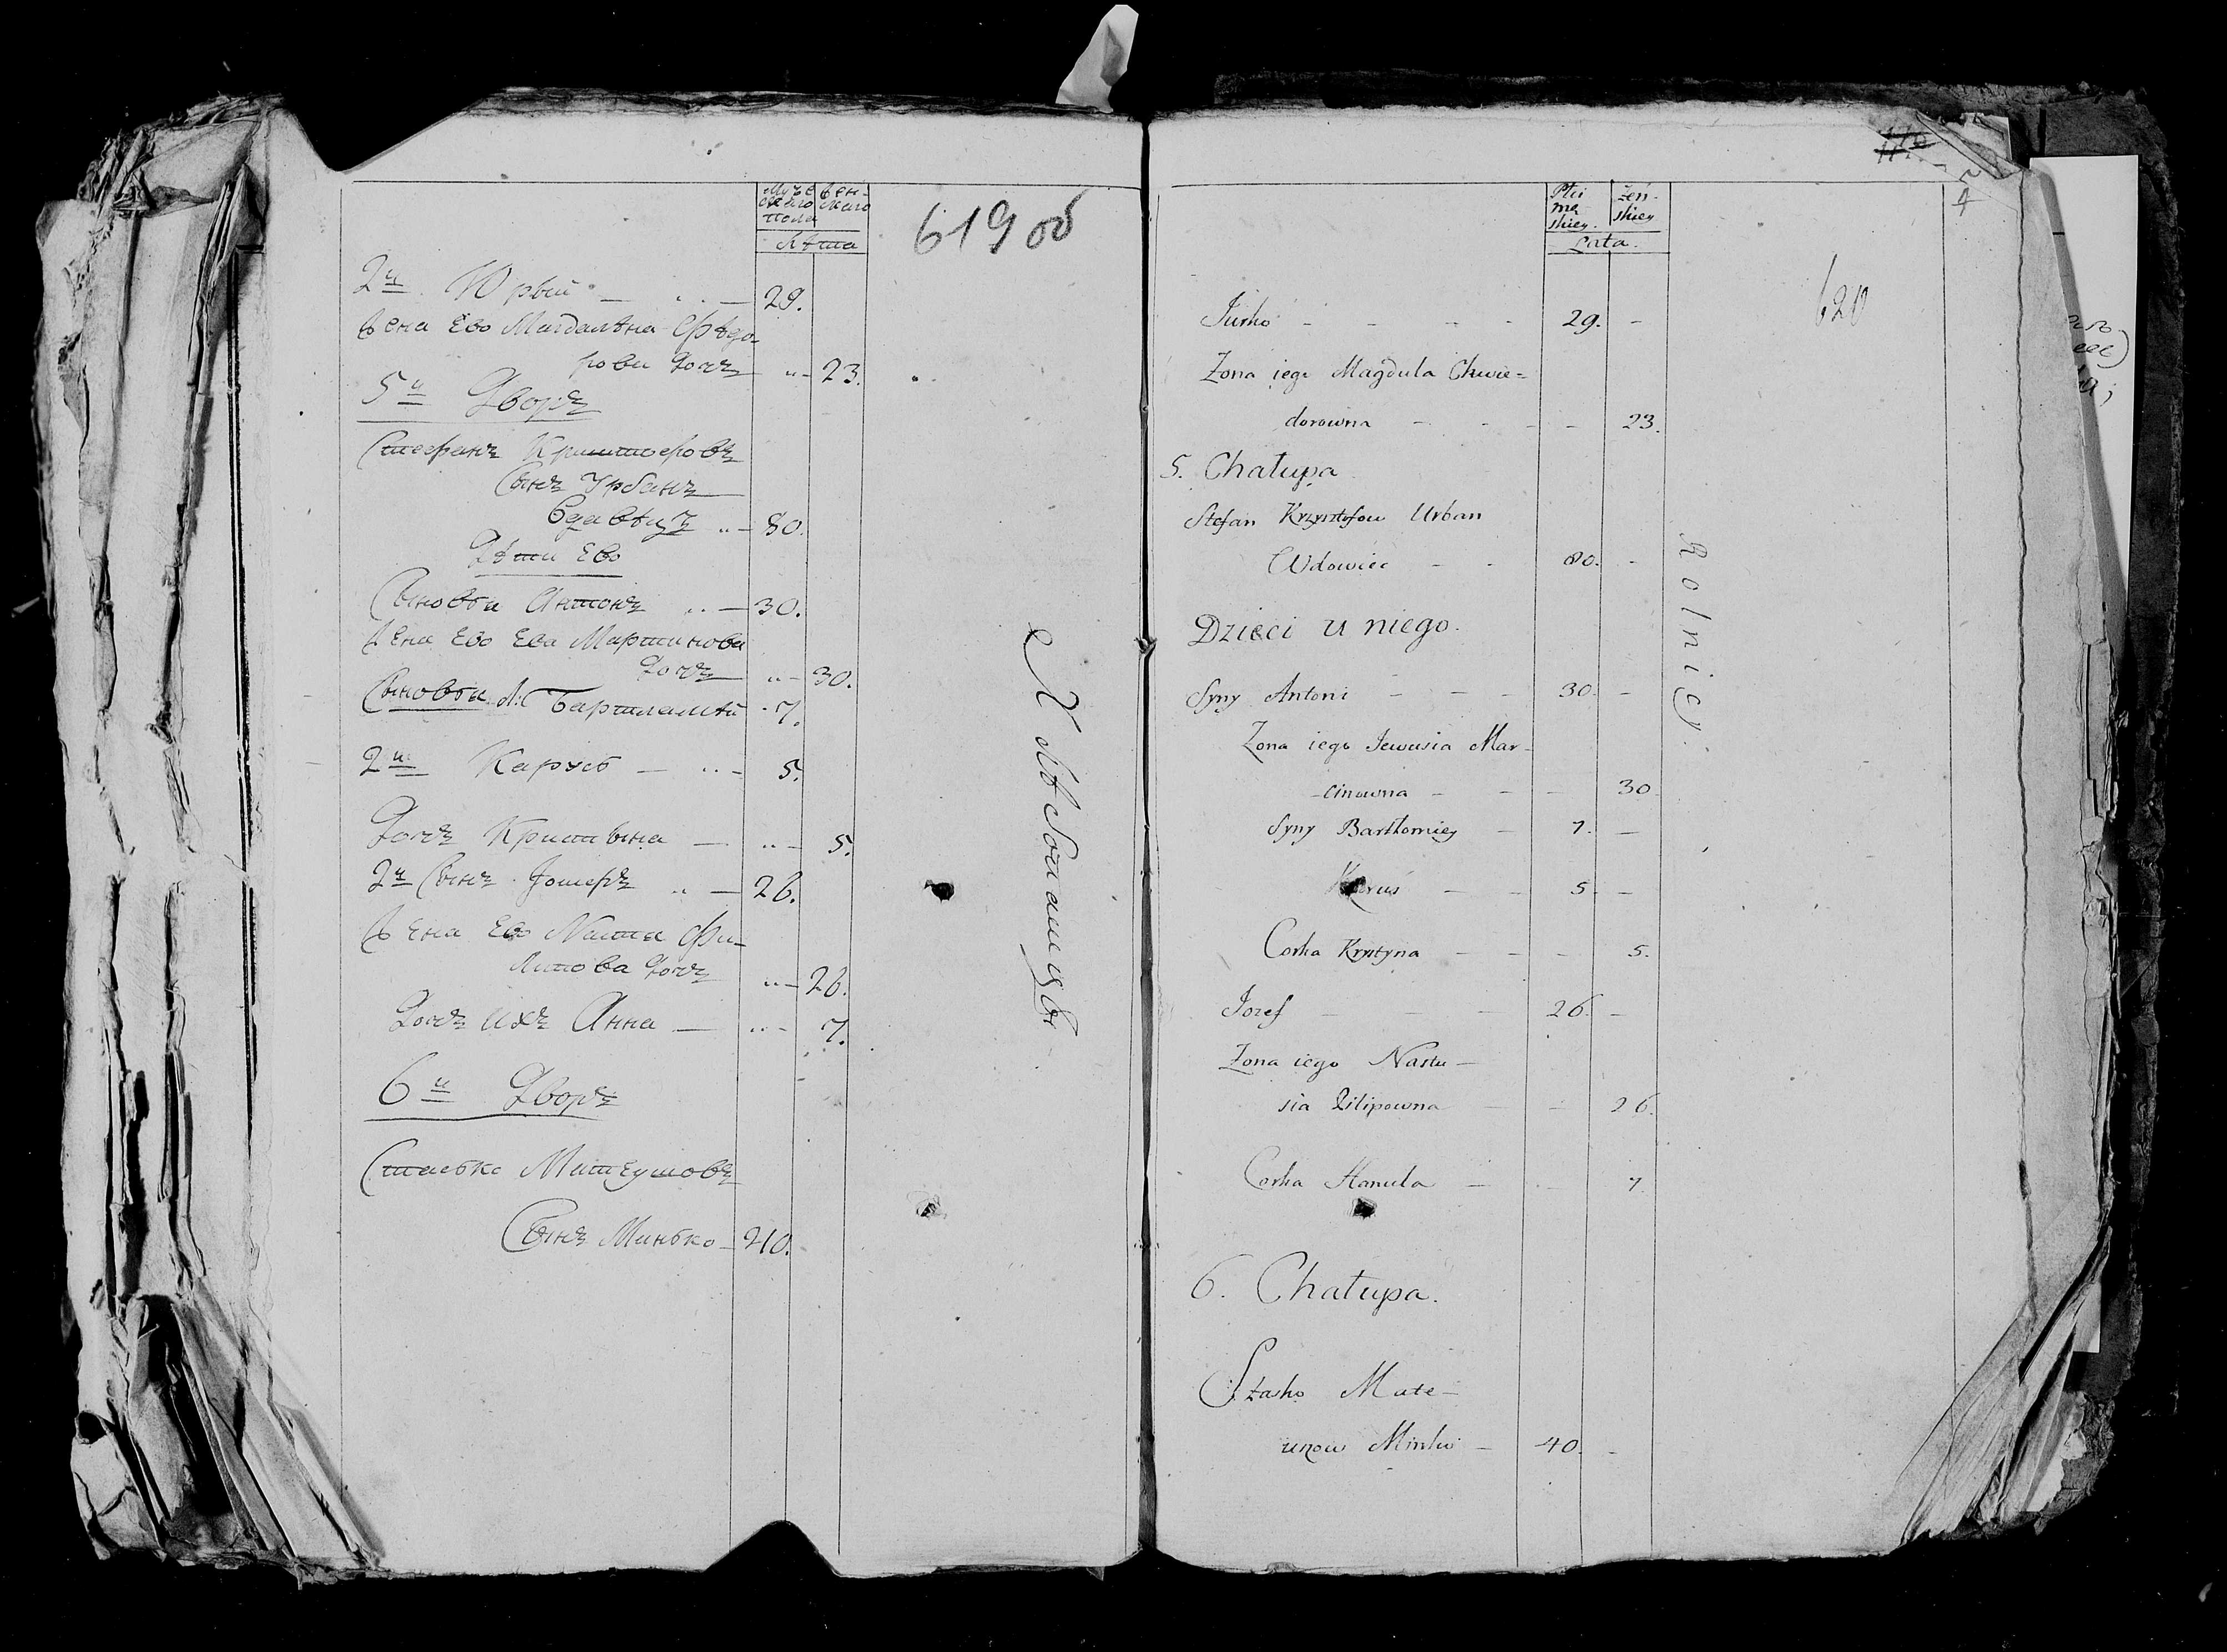 Муже Жен-
скаго скаго
пола
Лѣта
619 об
2й Юрый 29.
Жена Ево Магдалѣна Фѣдо-
рова Дочъ 23.
5й Дворъ
Стефанъ Криштофовъ
Сынъ Урбанъ
Вдавѣцъ 80.
Дѣти Ево
Сыновья Антонъ 30.
Жена Ево Ева Мартинова
Дочъ 30.
Сыновья Бартламѣй 7.
2й Карусь 5.
Дочъ Криштына 5.
2й Сынъ Іошефъ 26.
Жена Ево Наста Фи-
липова Дочъ 26.
Дочъ ихъ Анна 7.
6й Дворъ
Стасько Матеушовъ
Сынъ Минько 40.
Хлѣбопашцы
Płci
mę
skiey.
Żeń-
skiey
Lata.
620
Jurko - - - - 29. -
Zona iego Magdula Chwie=
dorowna - - - - 23.
5. Chałupa
Stefan Krzysztofow Urban
Wdowiec - - 80. -
Dzieci u niego.
Syny Antoni - - - 30. -
Zona iego Jewusia Mar-
-cinowna - - - 30
Syny Bartłomiey - 7. -
Karuś - - 5 -
Corka Krystyna - - - 5.
Jozef - - - 26. -
Zona iego Nastu-
sia Filipowna - - 26.
Corka Hanula - - 7.
6. Chałupa.
Stasko Mate-
uszow Minko - 40. -
Rolnicy.